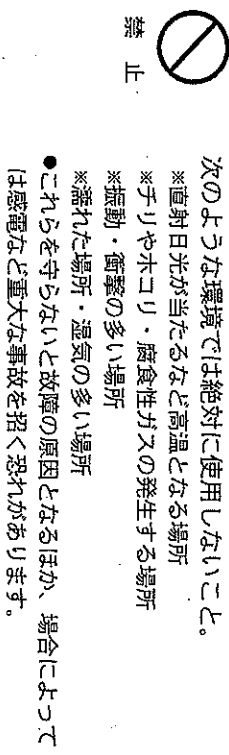 禁止
次のような環境では絶対に使用しないこと。
※直射日光が当たるなど高温となる場所
※チリやホコリ・腐食性ガスの発生する場所
※振動・衝撃の多い場所
※濡れた場所・湿気の多い場所
●これらを守らないと故障の原因となるほか、場合によって
は感電など重大な事故を招く恐れがあります。